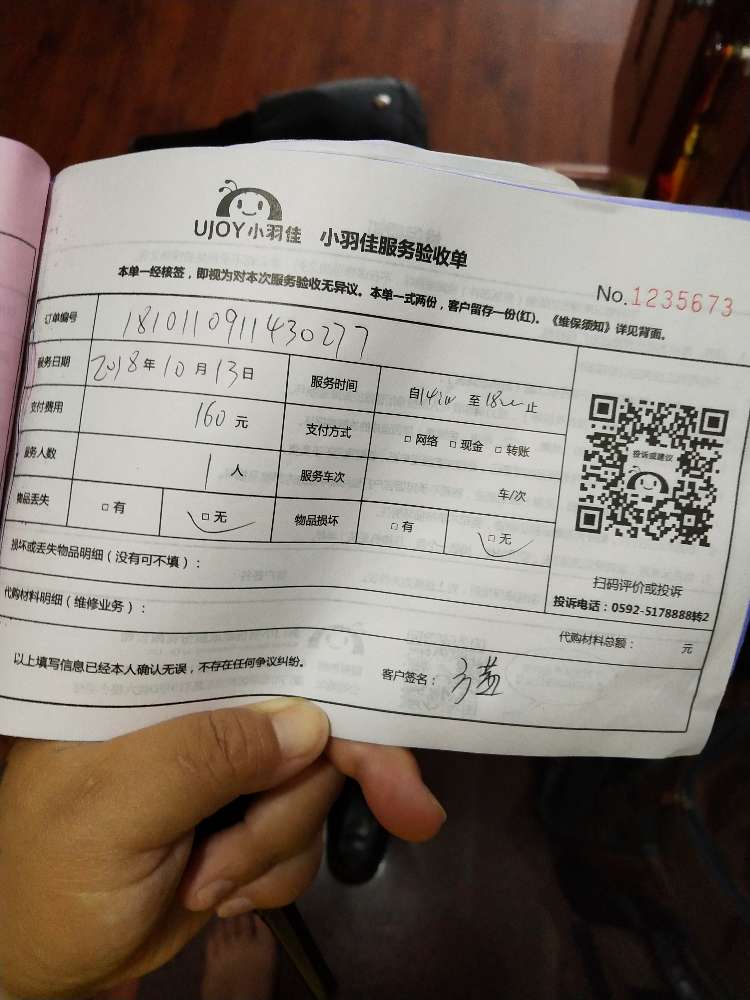 UJOY小羽佳 小羽佳服务验收单
No.1235673
本单一经核签，即视为对本次服务验收无异议。本单一式两份，客户留存一份(红)。《维保须知》详见背面。
订单编号 1810110911430277
服务日期 2018年10月13日 服务时间 自14:00 至18:00止
支付费用 160元 支付方式 □网络 □现金 □转账
服务人数 1人 服务车次 车/次
物品丢失 □有 □无 物品损坏 □有 □无
投诉或建议
扫码评价或投诉
投诉电话：0592-5178888转2
损坏或丢失物品明细（没有可不填）：
代购材料明细（维修业务）： 代购材料总额： 元
以上填写信息已经本人确认无误，不存在任何争议纠纷。 客户签名：